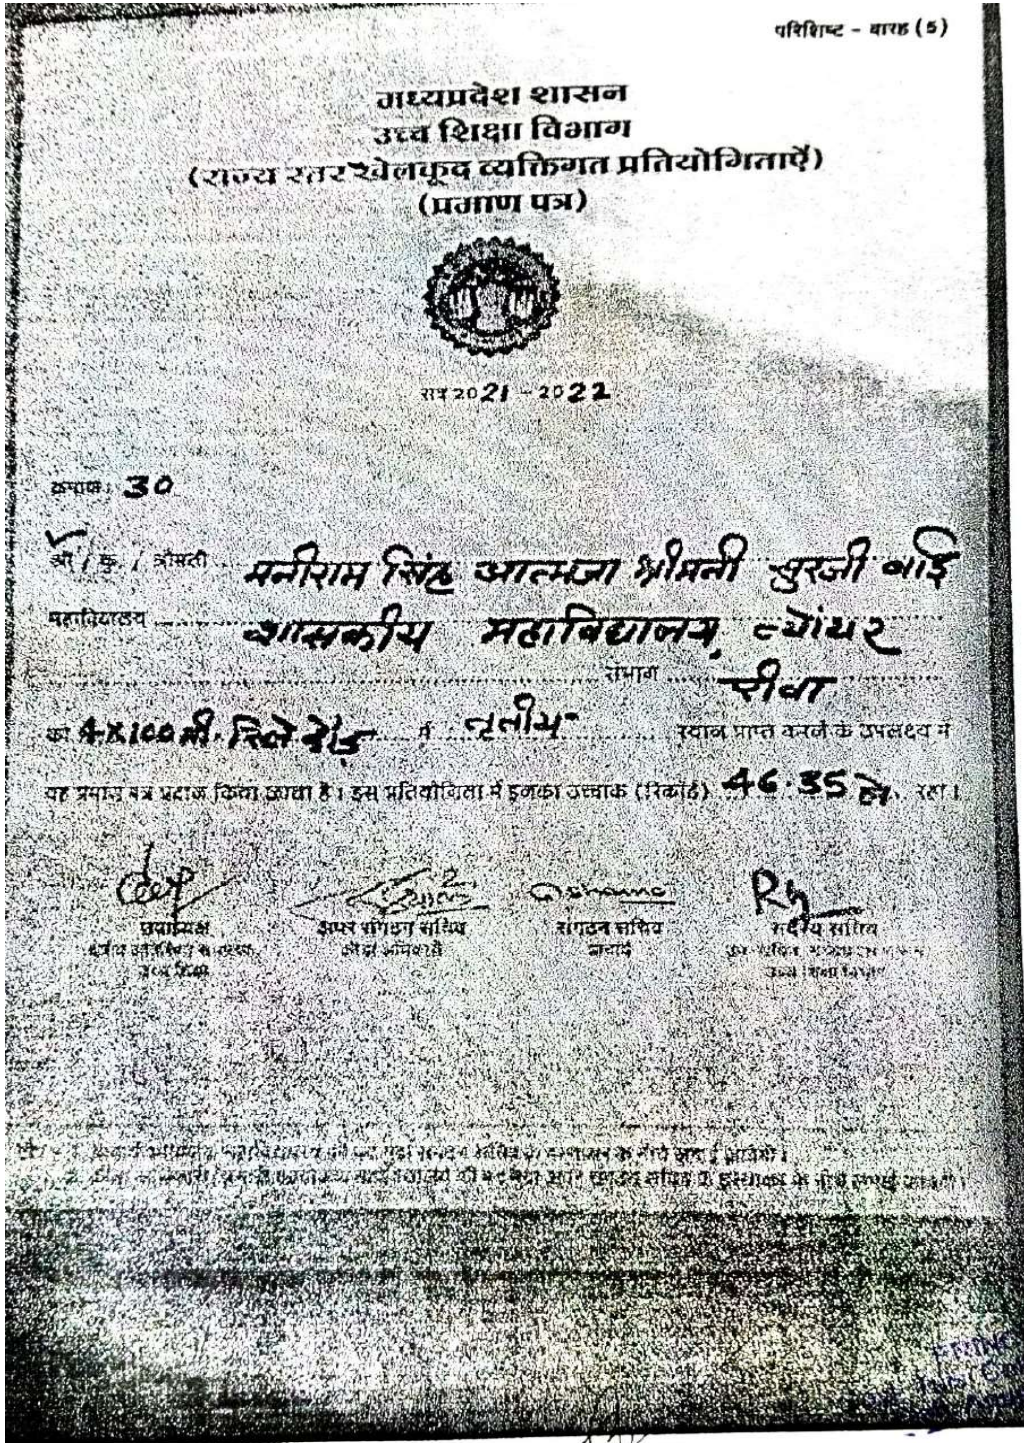 परिशिष्ट - बारह (5)
मध्यप्रदेश शासन
उच्च शिक्षा विभाग
(राज्य स्तर खेलकूद व्यक्तिगत प्रतियोगिताएँ)
(प्रमाण पत्र)
सत्र 2021 - 2022
क्रमांक: 30
श्री / कु. / श्रीमती मनीराम सिंह आत्मजा श्रीमती सुरजी बाई
महाविद्यालय शासकीय महाविद्यालय, त्योंथर
संभाग रीवा
को 4x100 मी. रिले दौड़ में तृतीय स्थान प्राप्त करने के उपलक्ष्य में
यह प्रमाण पत्र प्रदान किया जाता है। इस प्रतियोगिता में इनका उच्चांक (रिकॉर्ड) 46.35 से. रहा।
उपाध्यक्ष अपर संगठन सचिव संगठन सचिव सदस्य सचिव
क्रीड़ा अधिकारी प्राचार्य
उच्च शिक्षा उच्च शिक्षा विभाग
के नीचे लगाई जावेगी।
के हस्ताक्षर के नीचे लगाई जावेगी।